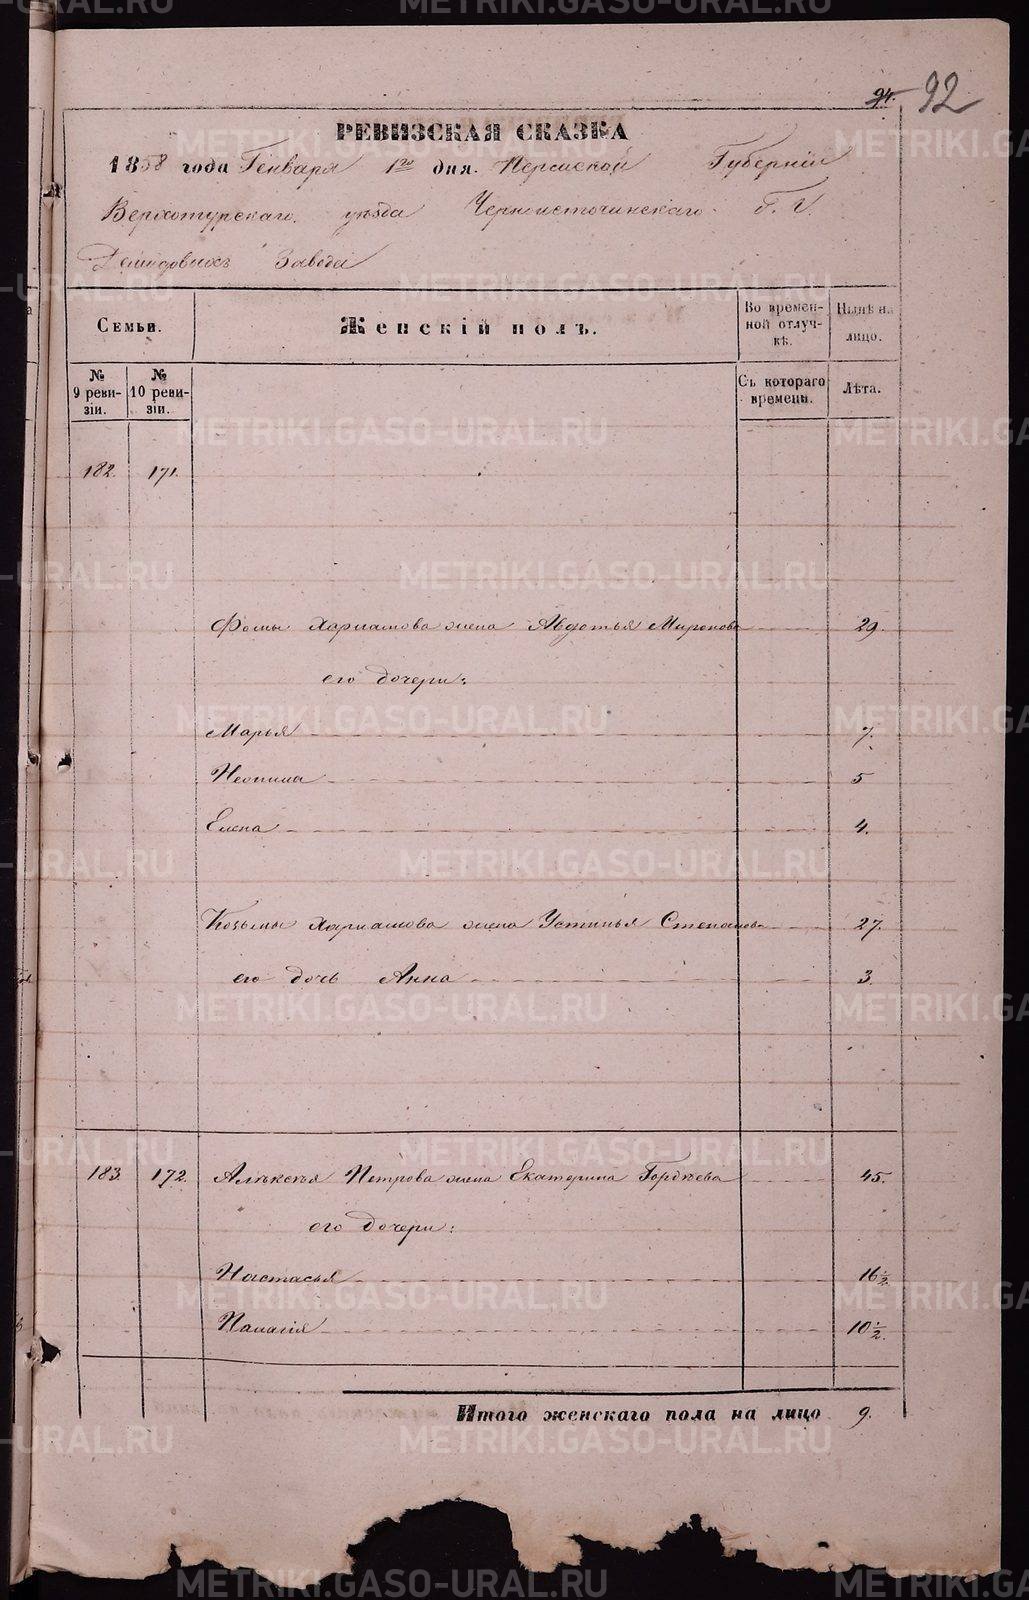 24. 92
РЕВИЗСКАЯ СКАЗКА
1858 года Генваря 1го дня. Пермской Губернiи
Верхотурскаго уѣзда Черноисточинскаго Г.г.
Демидовыхъ Завода
Семьи.
Женскiй полъ.
Во времен-
ной отлуч-
кѣ.
Нынѣ на
лицо.
№
9 реви-
зiи.
№
10 реви-
зiи.
Съ котораго
времени.
Лѣта.
182. 171.
Фомы Харламова жена Авдотья Миронова 29.
его дочери:
Марья 7.
Неонила 5
Елена 4.
Козьмы Харламова жена Устинья Степанова 27.
его дочь Анна 3.
183. 172. Алексѣя Петрова жена Екатерина Гордѣева 45.
его дочери:
Настасья 16 1/2
Палагiя 10 1/2
Итого женскаго пола на лицо 9.
METRIKI.GASO-URAL.RU